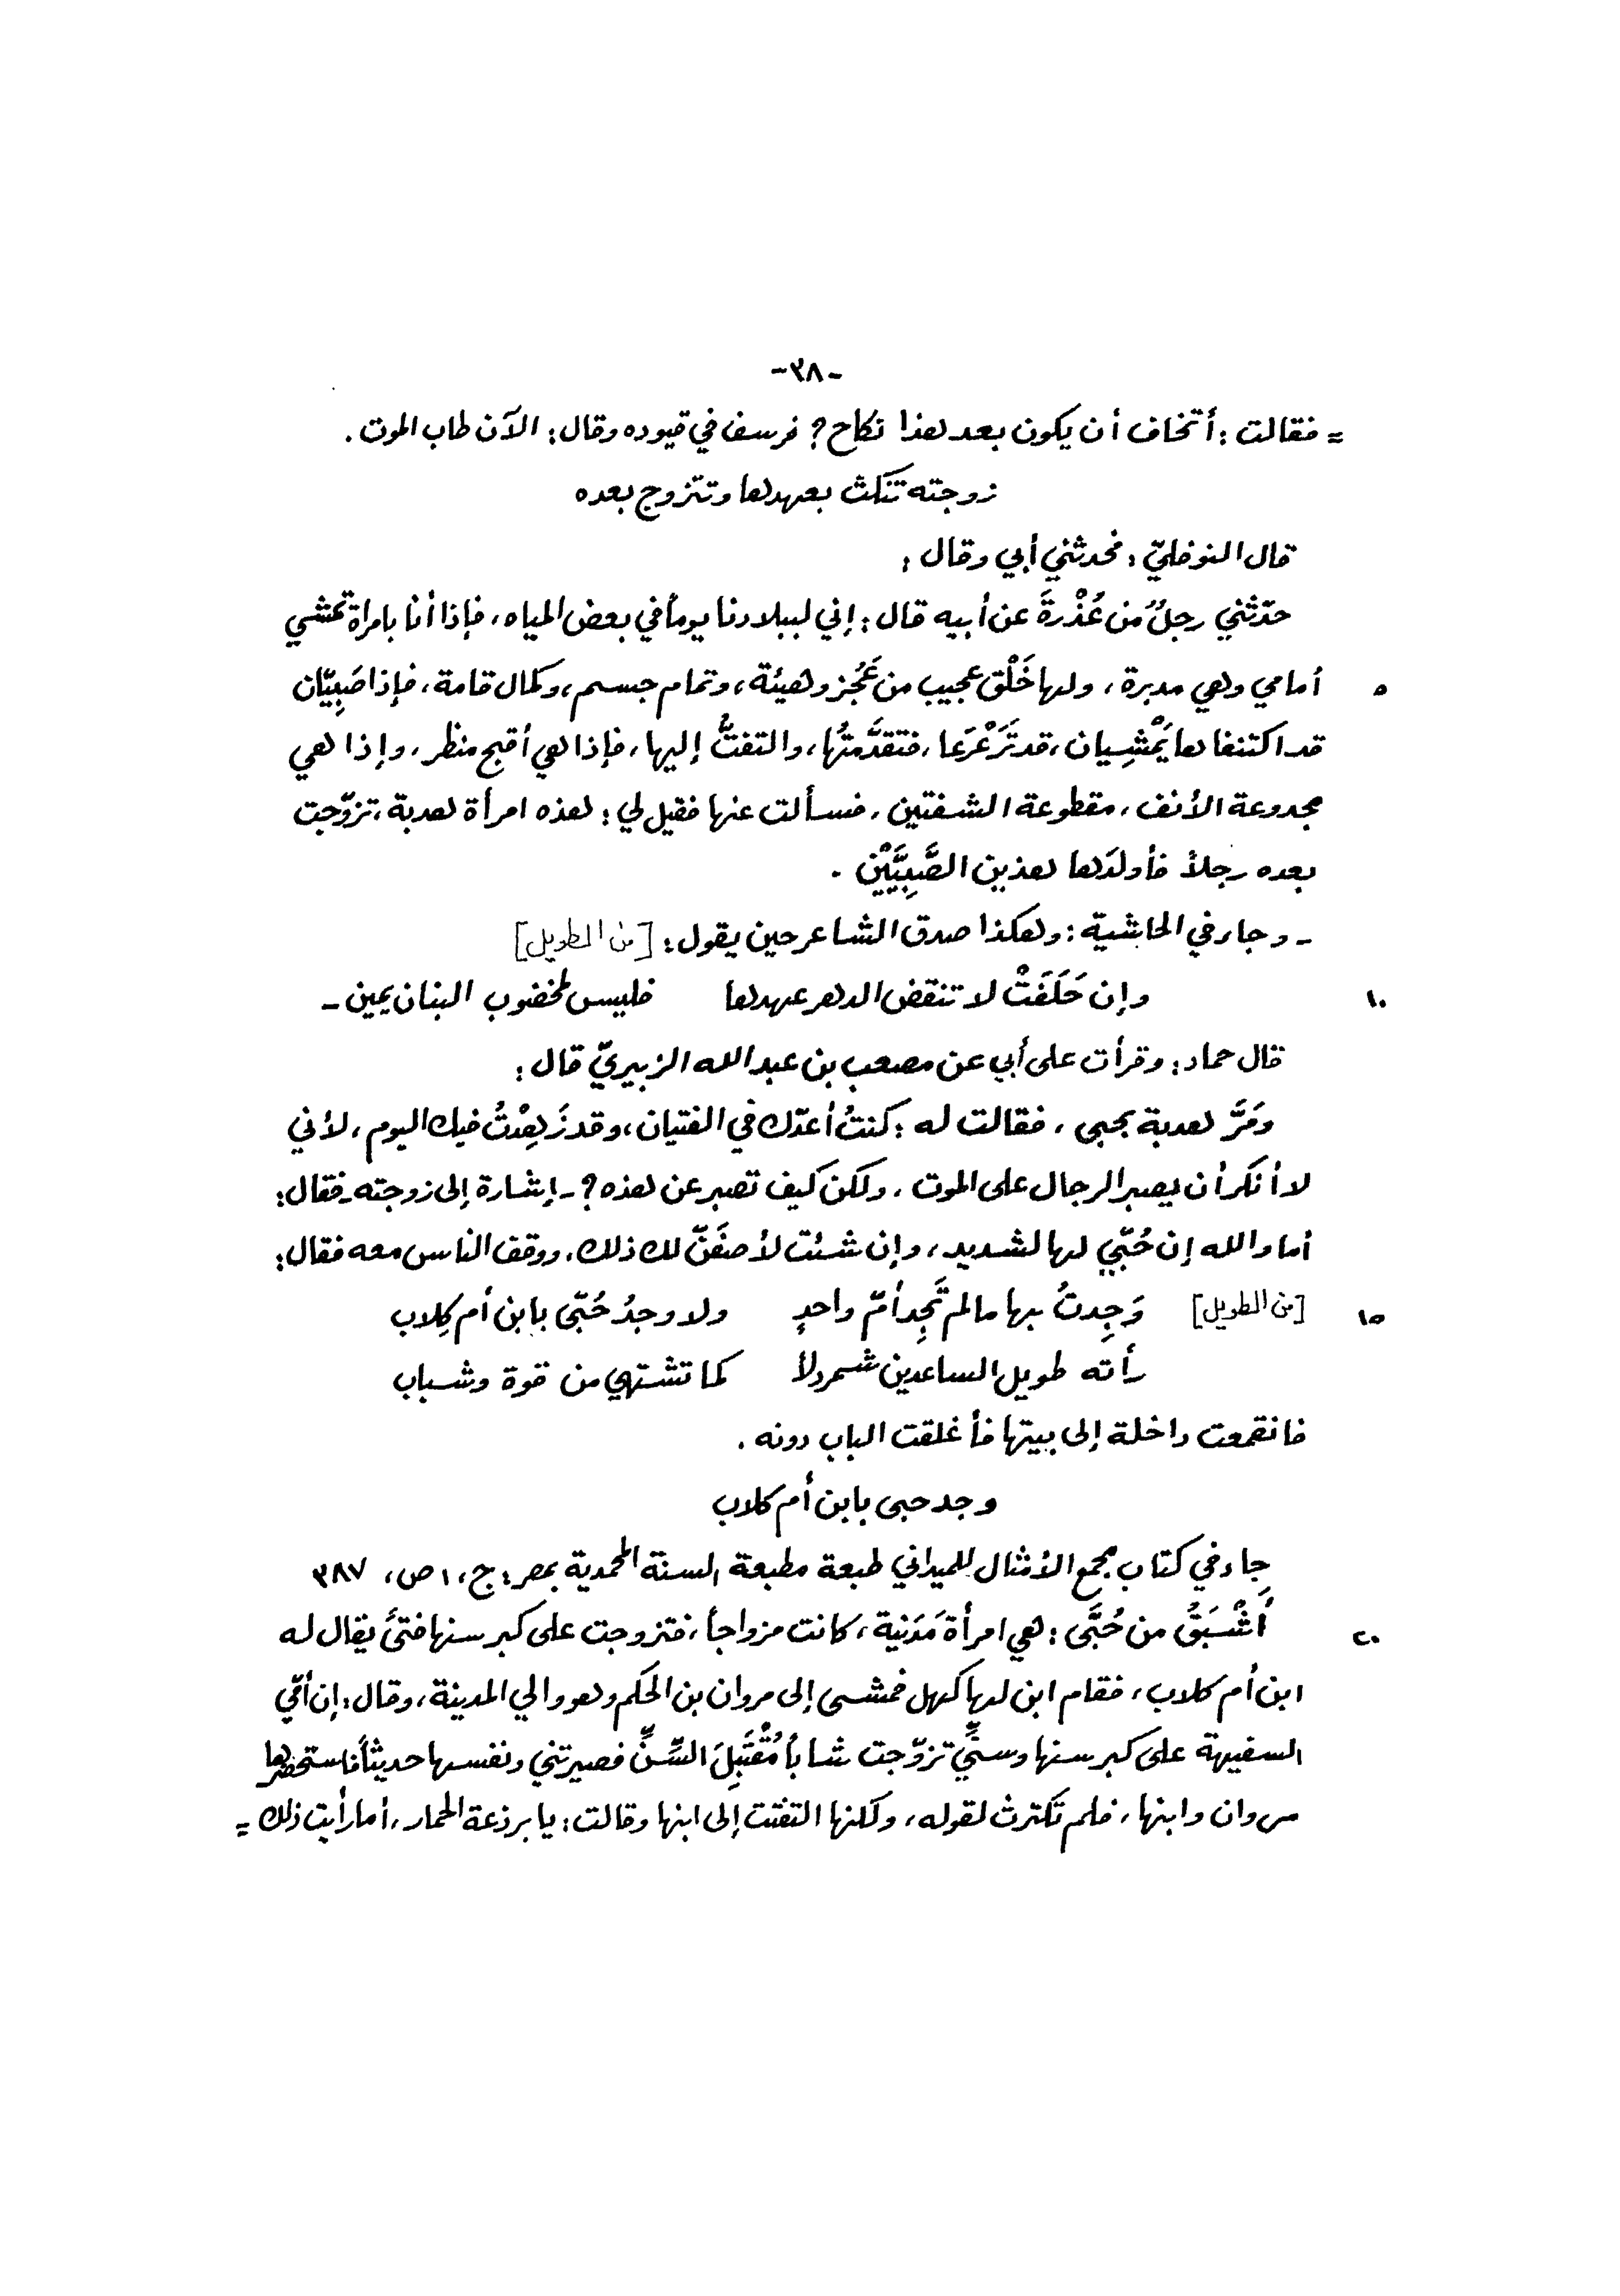 -٣٨-
= فقالت : أتخاف أن يكون بعد هذا نكاح ؟ فرسف في قيوده وقال : الآن طاب الموت .
زوجته تنكث بعهدها وتتزوج بعده
قال النوفليّ : فحدثني أبي وقال :
حدّثني رجلٌ من عُذْرةَ عن أبيه قال : إني لببلادنا يوماً في بعض المياه ، فإذا أنا بامرأة تمشي
أمامي وهي مدبرة ، ولها خَلْق عجيب من عَجُز وهيئة ، وتمام جسم ، وكمال قامة ، فإذا صَبِيّان ٥
قد اكتنفاها يَمْشِيان ، قد تَرَعْرَعا ، فتقدَّمتُها ، والتفتُّ إليها ، فإذا هي أقبح منظر ، وإذا هي
مجدوعة الأنف ، مقطوعة الشفتين ، فسألت عنها فقيل لي : هذه امرأة هدبة ، تزوّجت
بعده رجلاً فأولدَها هذين الصَّبِيَّيْن .
- وجاء في الحاشية : وهكذا صدق الشاعر حين يقول : [من الطويل]
وإن حَلَفَتْ لا تنقض الدهر عهدها فليس لمخضوب البنان يمين - ١٠
قال حماد : وقرأت على أبي عن مصعب بن عبد الله الزبيريّ قال :
ومَرَّ هدبة بحبى ، فقالت له : كنتُ أعدّك في الفتيان ، وقد زَهِدْتُ فيك اليوم ، لأني
لا أنكر أن يصبر الرجال على الموت ، ولكن كيف تصبر عن هذه ؟ - إشارة إلى زوجته - فقال :
أما والله إن حُبّي لها لشديد ، وإن شئت لأصفَنّ لك ذلك ، ووقف الناس معه فقال :
[من الطويل] وَجِدتُ بها ما لم تَجِد أمّ واحدٍ ولا وجدُ حُبّى بابن أم كِلاب ١٥
رأته طويل الساعدين شمردلاً كما تشتهي من قوة وشباب
فانقمعت داخلة إلى بيتها فأغلقت الباب دونه .
وجد حبى بابن أم كلاب
جاء في كتاب مجمع الأمثال للميداني طبعة مطبعة السنة المحمدية بمصر : ج ، ١ ص ، ٣٨٧
أَشْبَقُ من حُبَّى : هي امرأة مَدَنية ، كانت مزواجاً ، فتزوجت على كبر سنها فتىً يقال له ٢٠
ابن أم كلاب ، فقام ابن لها كهل فمشى إلى مروان بن الحكم وهو والي المدينة ، وقال : إن أمّي
السفيهة على كبر سنها وسنِّي تزوّجت شاباً مُقْتَبِلَ السِّنِّ فصيرتني ونفسها حديثاً فاستحضرها
مروان وابنها ، فلم تكترث لقوله ، ولكنها التفتت إلى ابنها وقالت : يا برذعة الحمار ، أما رأيت ذلك =